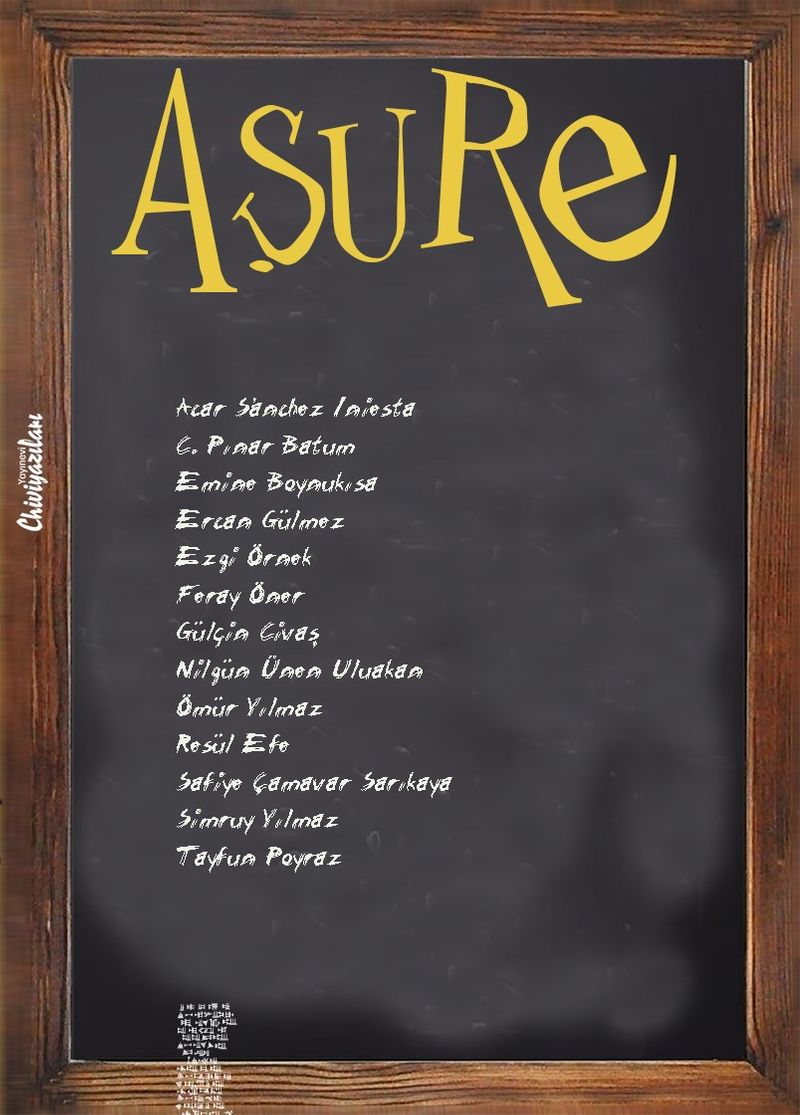 AŞURe
Acar Sànchez Iniesta
C. Pınar Batum
Emine Boynukısa
Ercan Gülmez
Ezgi Örnek
Feray Öner
Gülçin Civaş
Nilgün Ünen Uluakan
Ömür Yılmaz
Resül Efe
Safiye Çamavar Sarıkaya
Simruy Yılmaz
Tayfun Poyraz
Yayınevi
Chiviyazıları